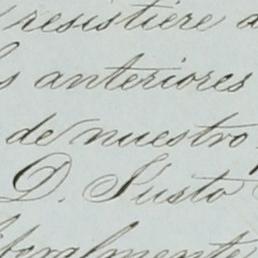 resistiere a
s anteriores
de nuestro
D. Justo
liberalmente